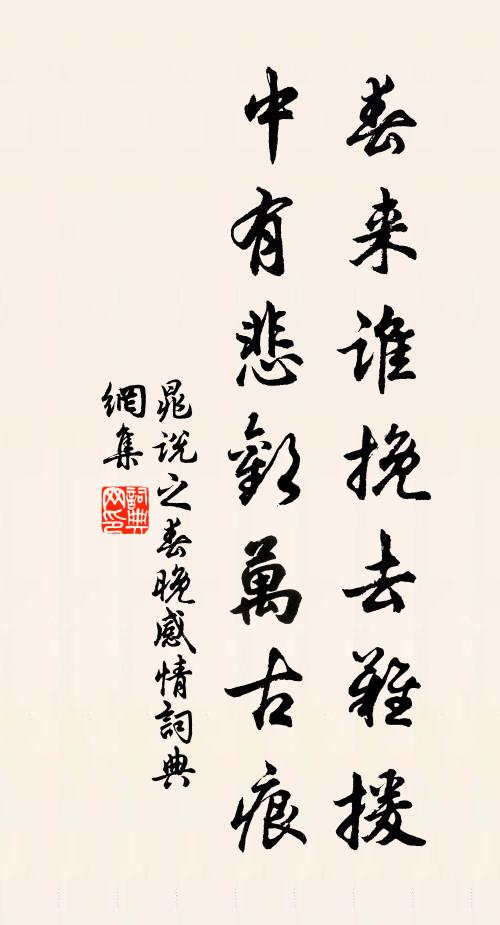 春来誰挽去難援
中有悲歡萬古痕
晁說之春晚感情詞典
網集
詞典
网印